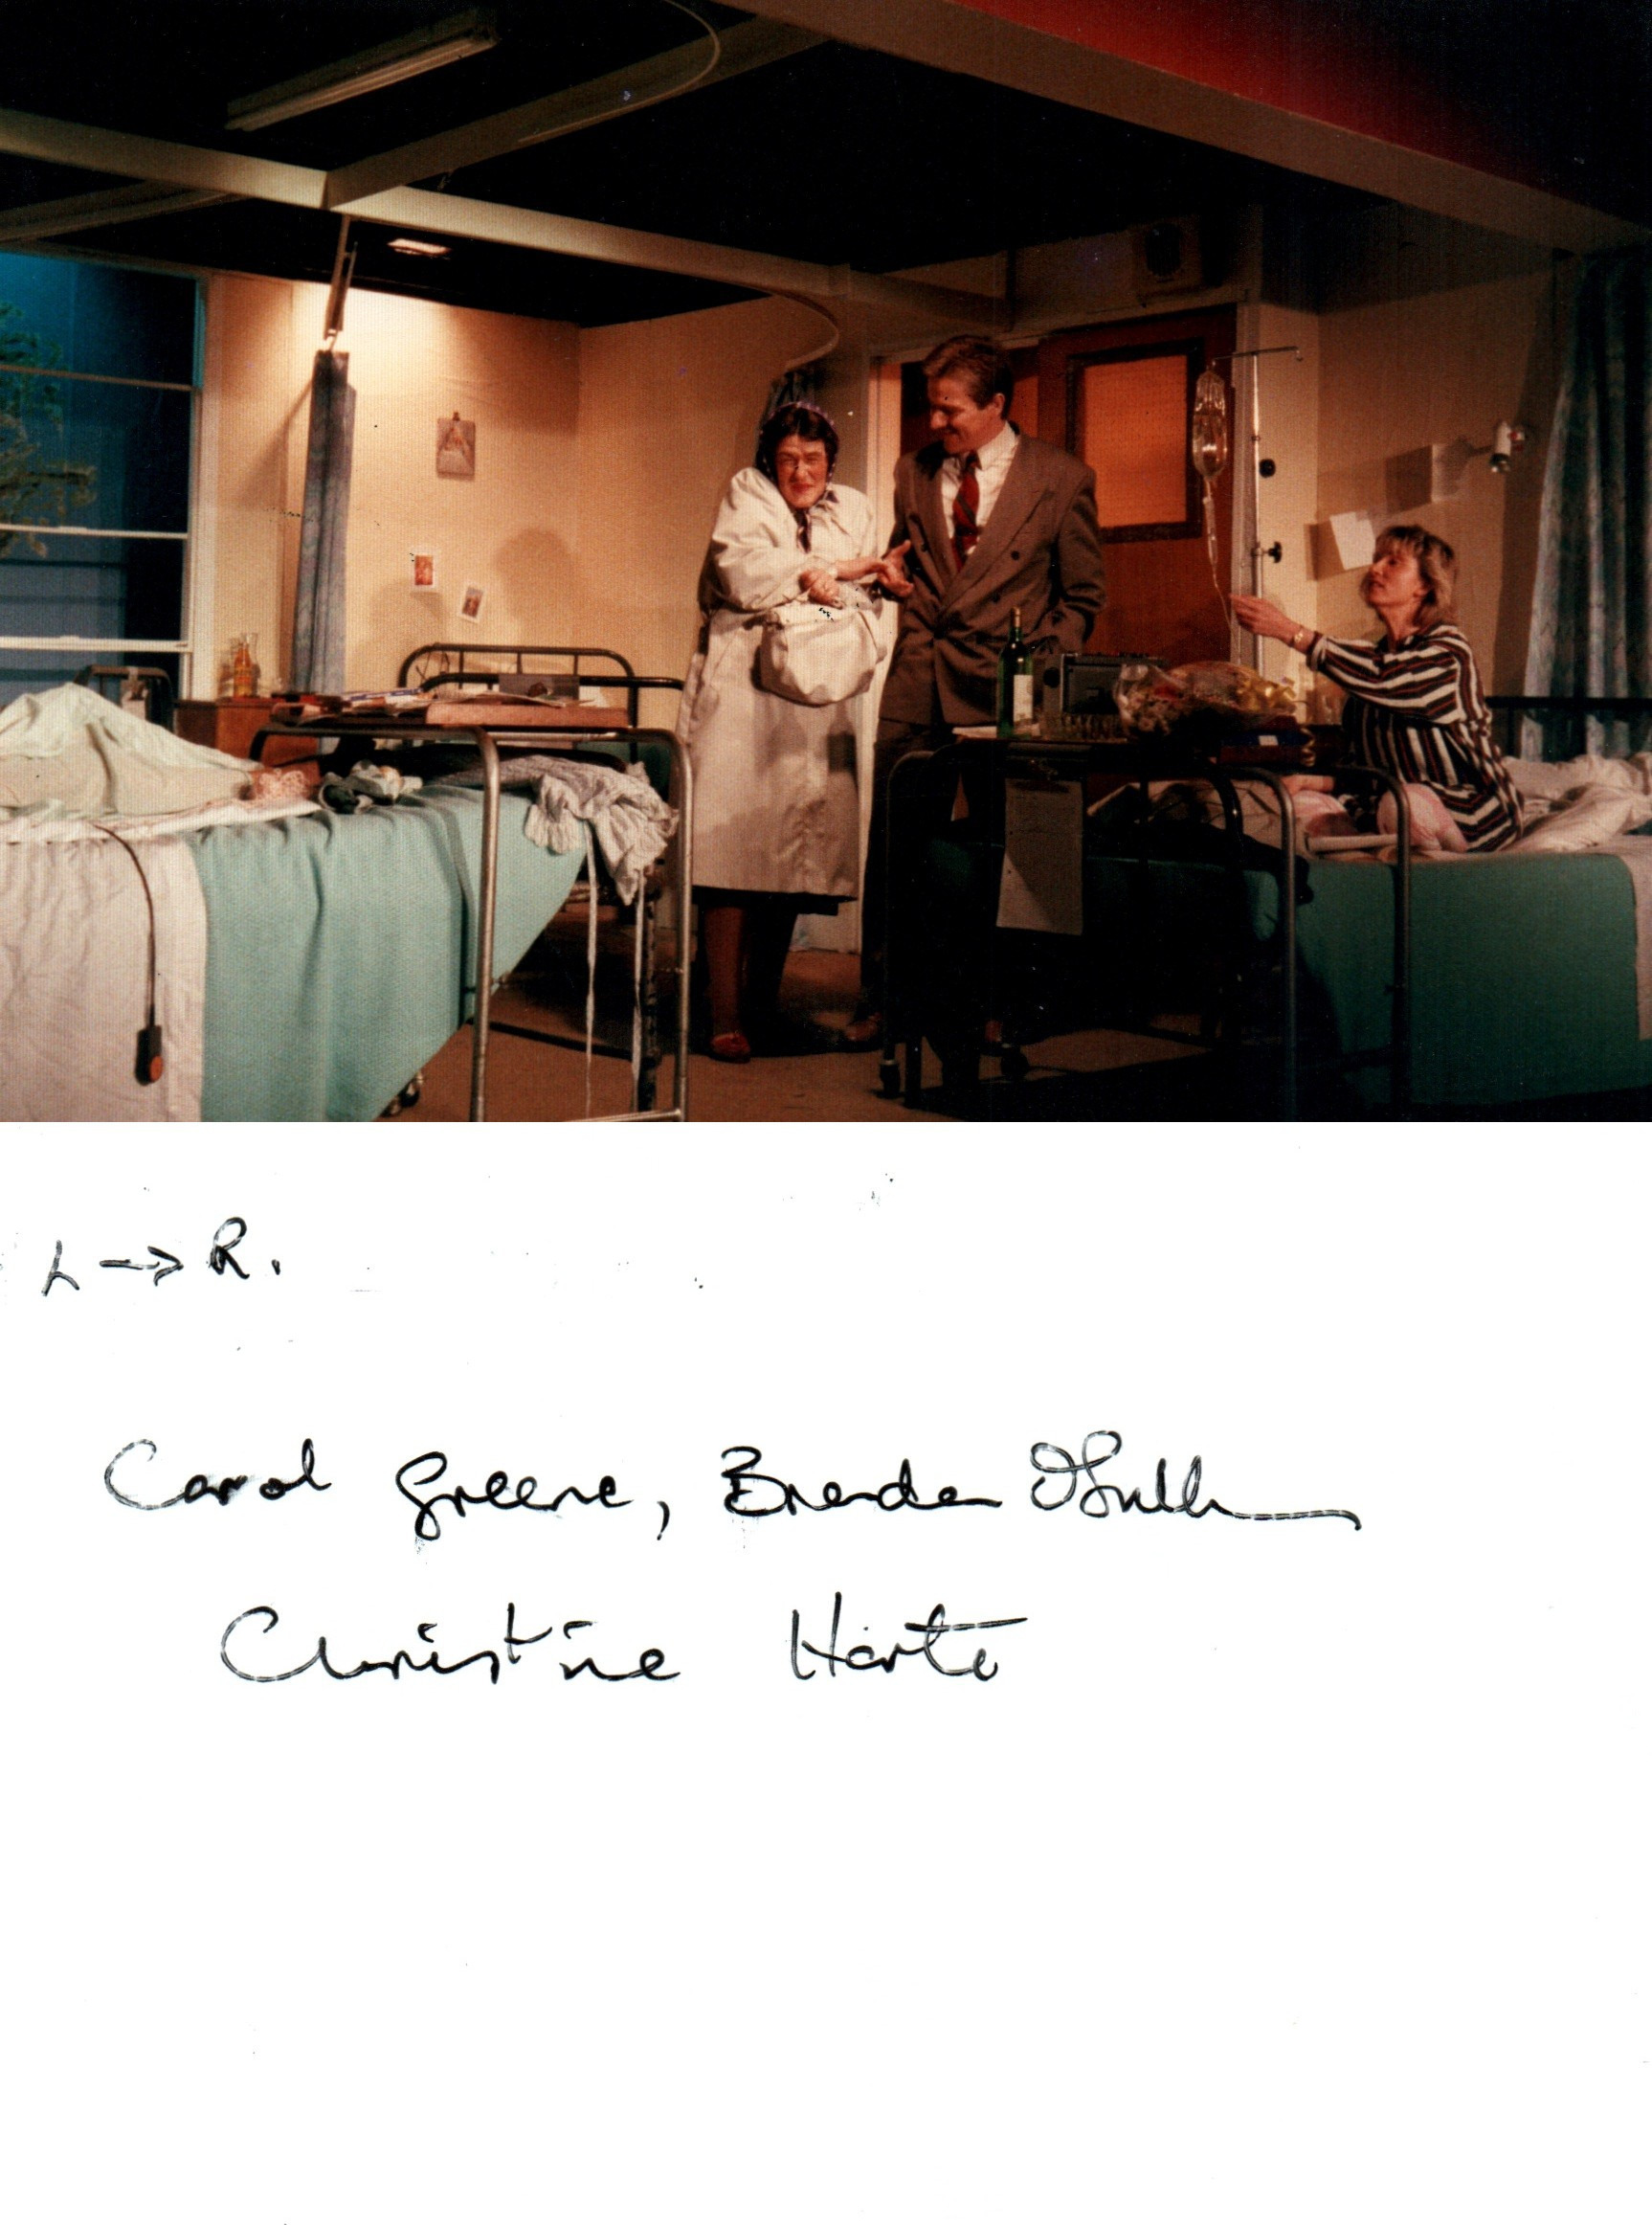 L → R.
Carol Greene, Brendan O'Sullivan
Christine Harte